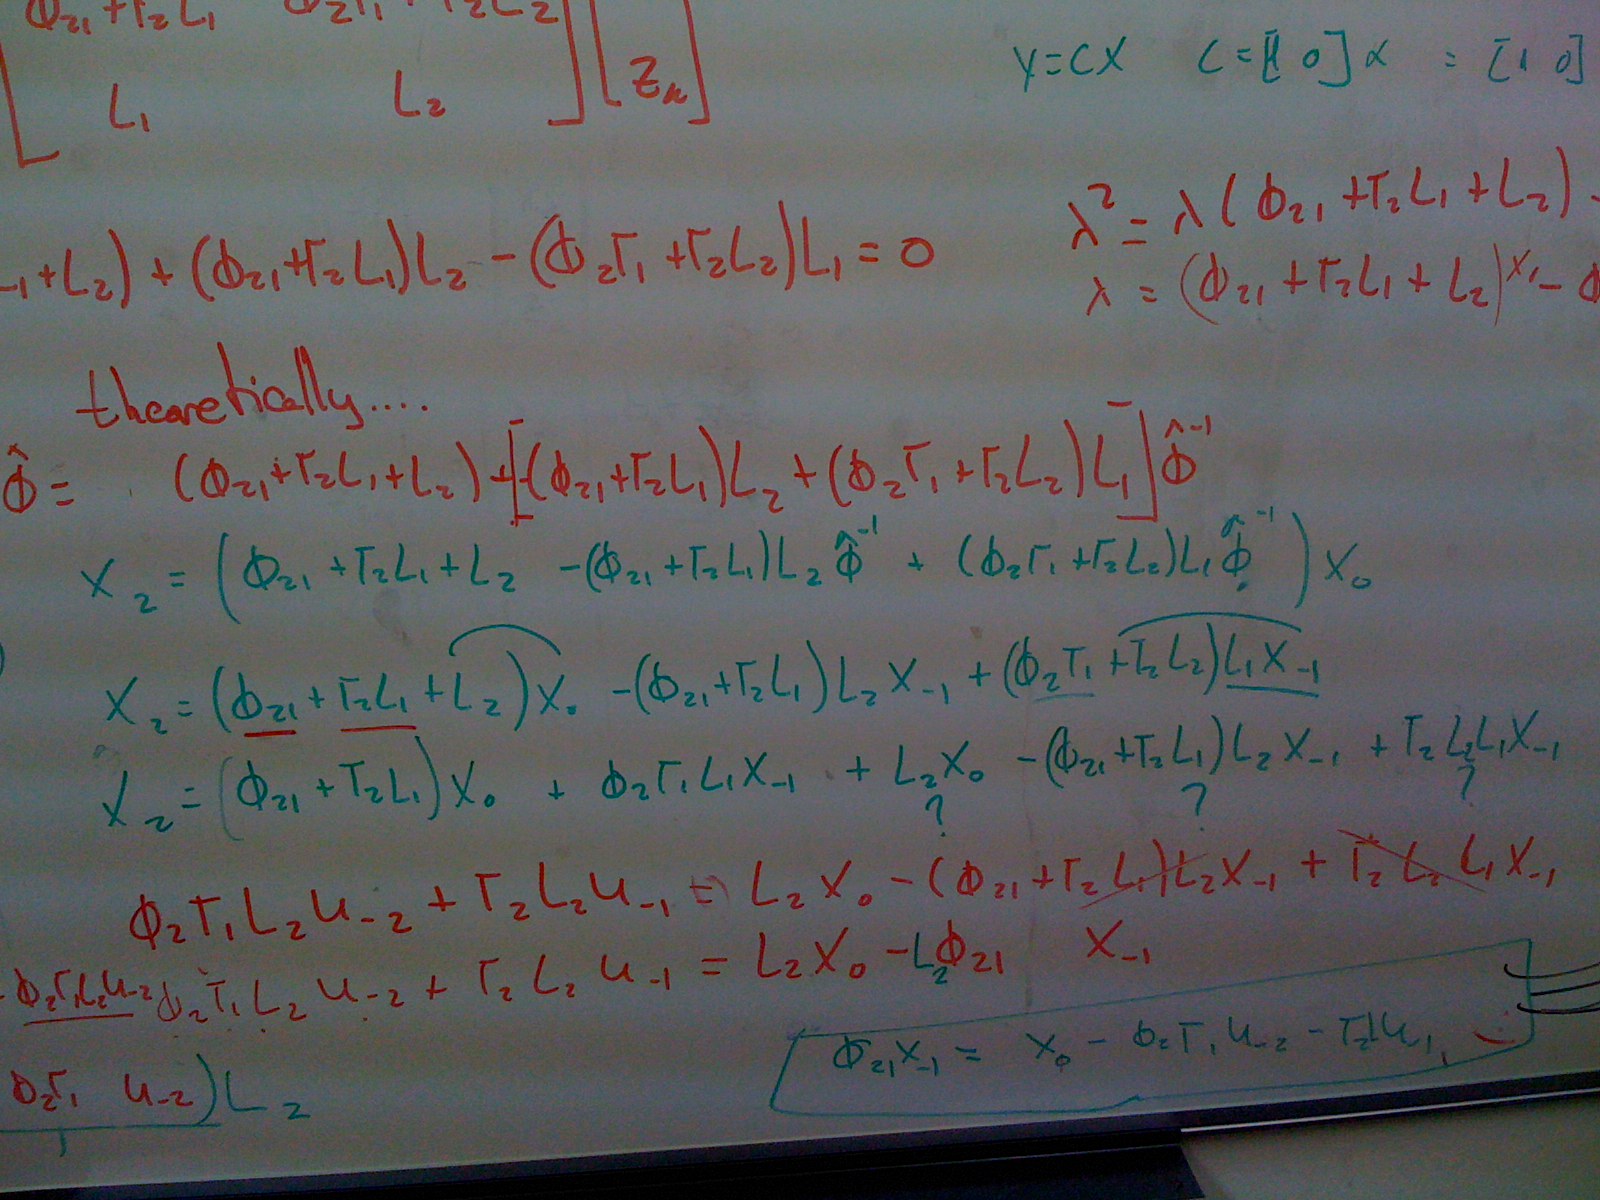 Φ₂₁+Γ₂L₁ Φ₂Γ₁+Γ₂L₂
L₁ L₂ Zₖ
Y=CX C=[1 0]α = [1 0]
λ² = λ(Φ₂₁+Γ₂L₁+L₂)
₋₁+L₂) + (Φ₂₁+Γ₂L₁)L₂ - (Φ₂Γ₁+Γ₂L₂)L₁ = 0
λ = (Φ₂₁+Γ₂L₁+L₂)X₁ - Φ
theoretically....
Φ̂ = (Φ₂₁+Γ₂L₁+L₂) + [-(Φ₂₁+Γ₂L₁)L₂ + (Φ₂Γ₁+Γ₂L₂)L₁]Φ̂⁻¹
X₂ = (Φ₂₁+Γ₂L₁+L₂ -(Φ₂₁+Γ₂L₁)L₂Φ̂⁻¹ + (Φ₂Γ₁+Γ₂L₂)L₁Φ̂⁻¹)X₀
X₂ = (Φ₂₁+Γ₂L₁+L₂)X₀ -(Φ₂₁+Γ₂L₁)L₂X₋₁ + (Φ₂Γ₁+Γ₂L₂)L₁X₋₁
X₂ = (Φ₂₁+Γ₂L₁)X₀ + Φ₂Γ₁L₁X₋₁ + L₂X₀ -(Φ₂₁+Γ₂L₁)L₂X₋₁ + Γ₂L₂L₁X₋₁
? ? ?
Φ₂Γ₁L₂U₋₂ + Γ₂L₂U₋₁ = L₂X₀ -(Φ₂₁+Γ₂L₁)L₂X₋₁ + Γ₂L₂L₁X₋₁
-Φ₂Γ₁L₂U₋₂ Φ₂Γ₁L₂U₋₂ + Γ₂L₂U₋₁ = L₂X₀ -L₂Φ₂₁ X₋₁
Φ₂₁X₋₁ = X₀ - Φ₂Γ₁U₋₂ - Γ₂U₋₁
Φ₂Γ₁ U₋₂)L₂